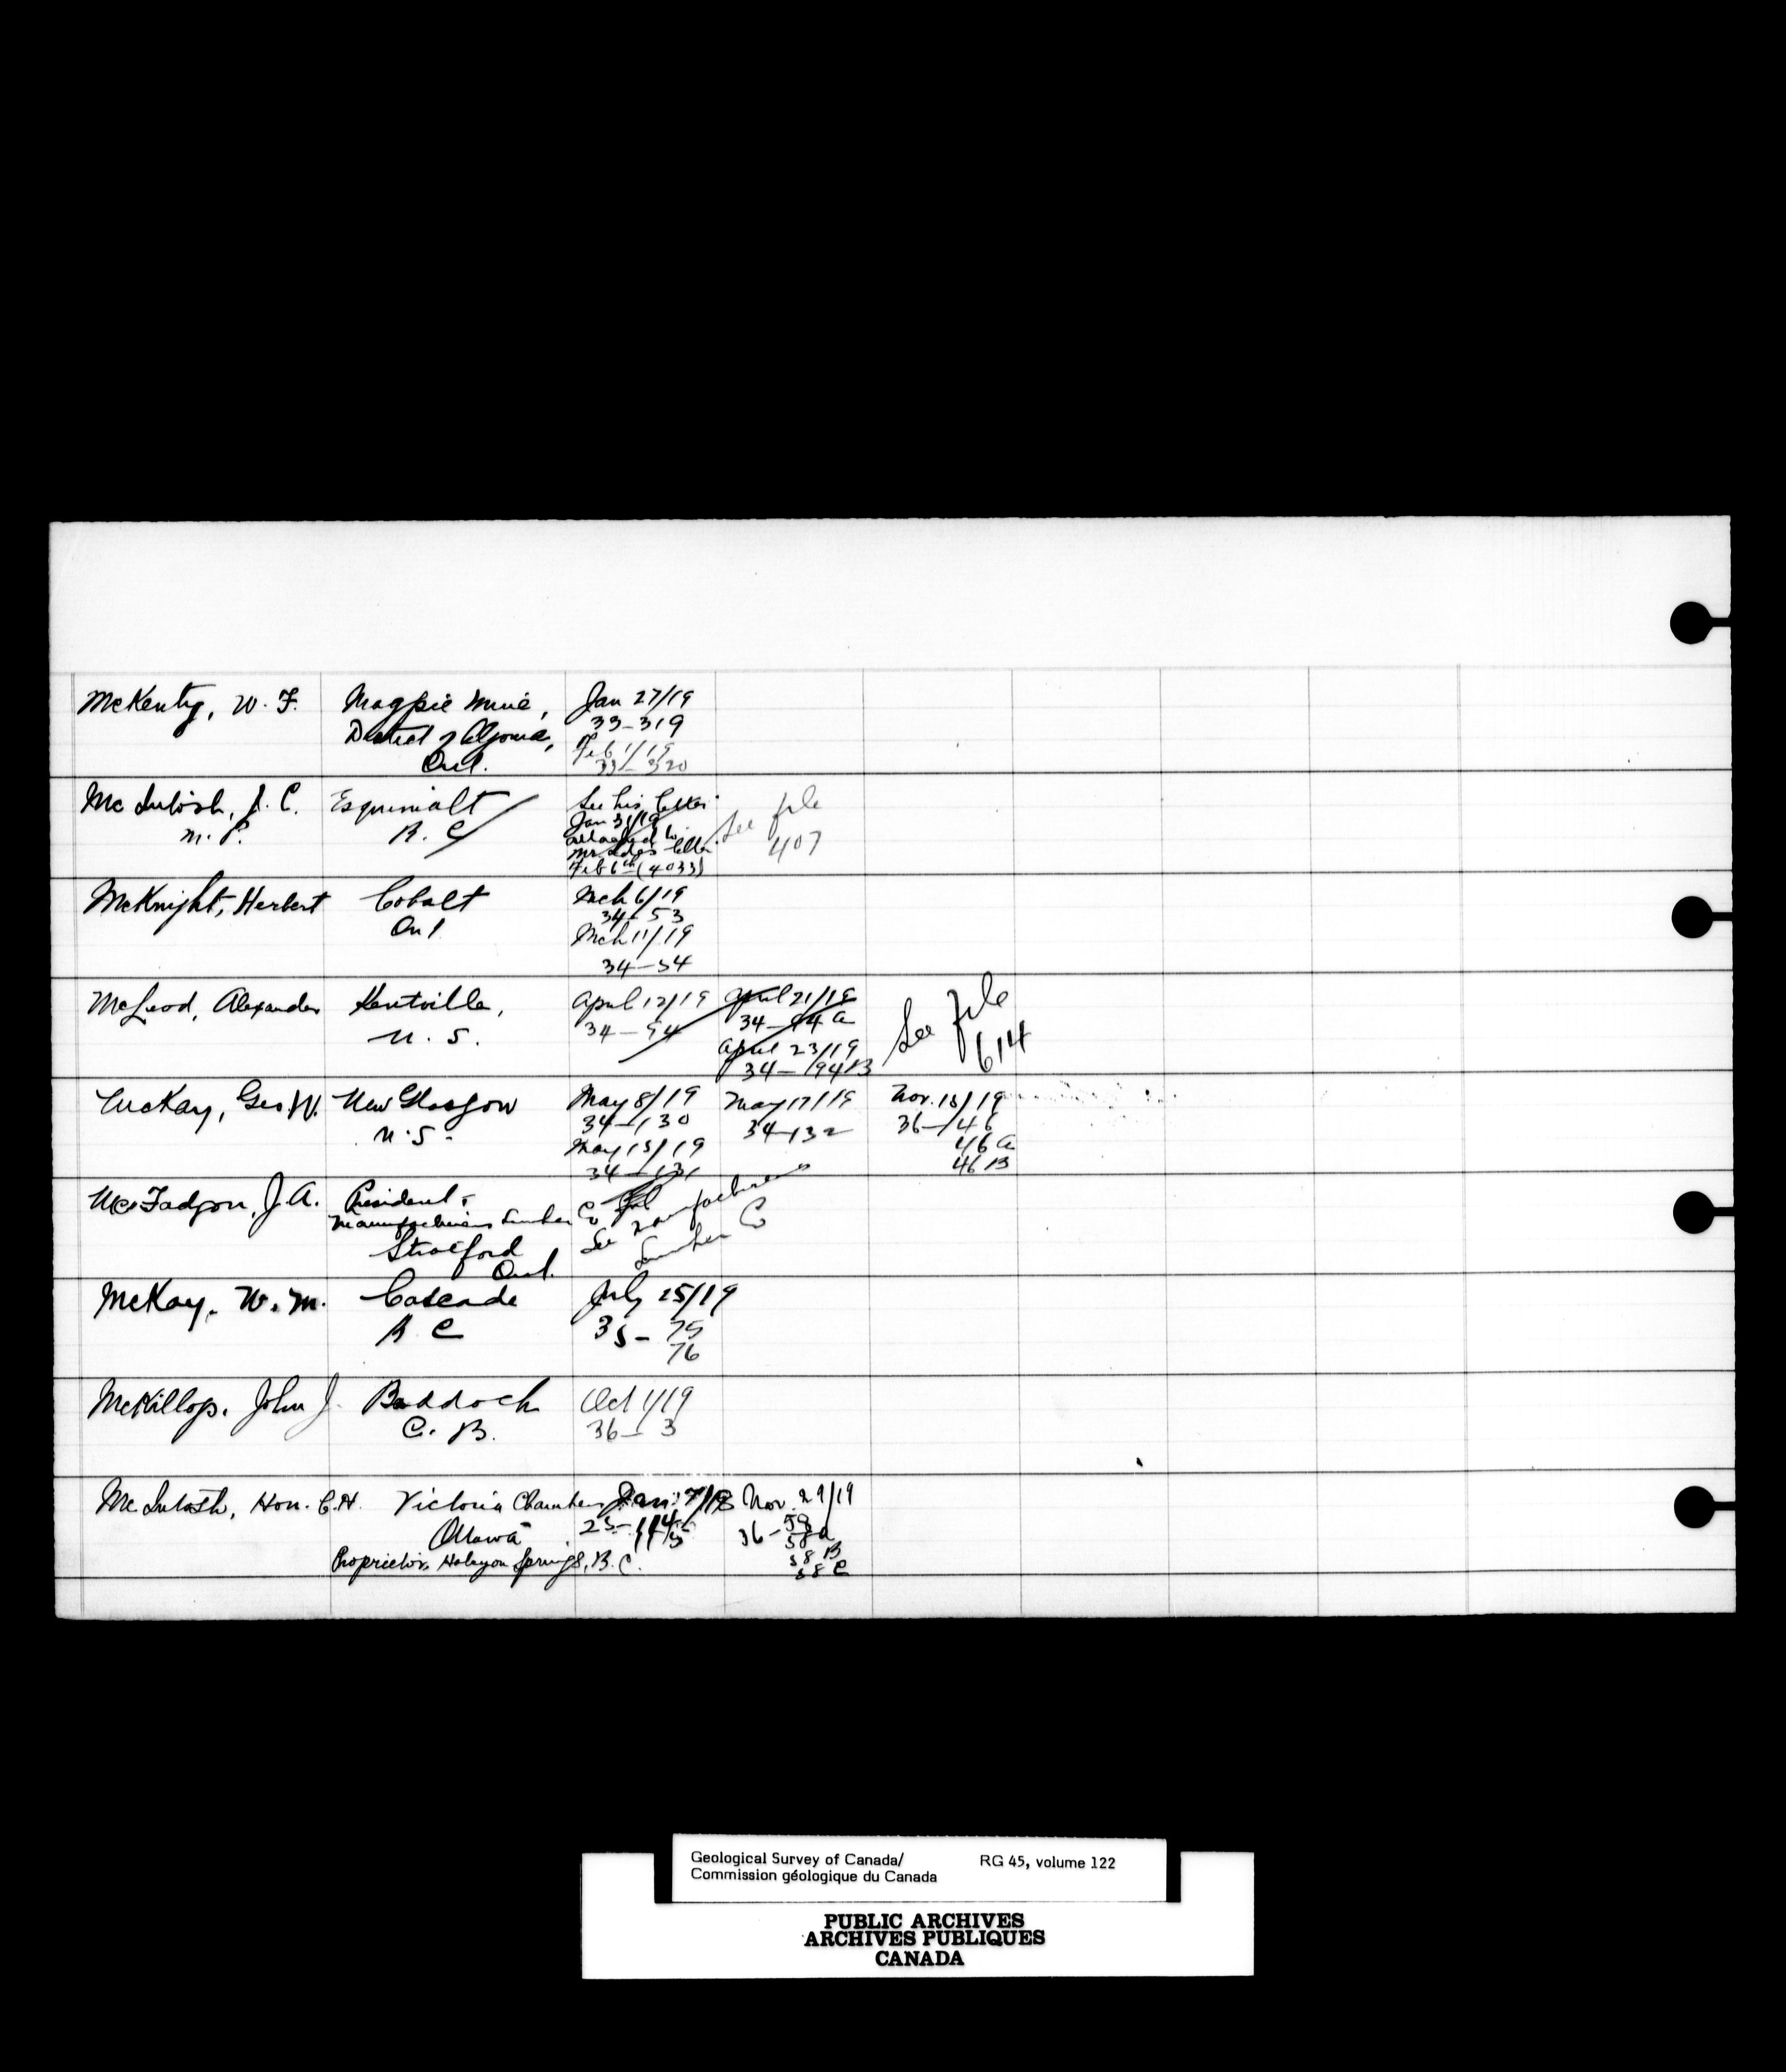 McKenty, W. F.
Magpie Mine,
District of Algoma,
Ont.
Jan 27/19
33-319
Feb 1/19
33-320
McIntosh, J. C.
M. P.
Esquimalt
B. C
See his letter
Jan 31/19
attached to
Mr letter
Feb 6th (4033)
See file
407
McKnight, Herbert
Cobalt
Ont
Mch 6/19
34-53
Mch 11/19
34-54
McLeod, Alexander
Kentville,
N. S.
April 12/19
34-94
April 21/19
34-94 a
April 23/19
34-94 B
See file
614
McKay, Geo W.
New Glasgow
N. S.
May 8/19
34-130
May 13/19
34-131
May 17/19
34-132
Nov. 18/19
36-46
46 a
46 B
McFadgon, J. A.
President,
Manufacturers Lumber Co
Stratford
Ont.
See Manufacturers
Lumber Co
McKay, W. M.
Cascade
B C
July 25/19
35-75
76
McKillop, John J.
Baddoch
C. B.
Oct 1/19
36-3
McIntosh, Hon. C. H.
Victoria Chambers
Ottawa
Proprietor, Halcyon Springs, B. C.
Jan. 7/18
25-114
115
Nov. 29/19
36-58
58 a
58 B
58 C
Geological Survey of Canada/
Commission géologique du Canada
RG 45, volume 122
PUBLIC ARCHIVES
ARCHIVES PUBLIQUES
CANADA